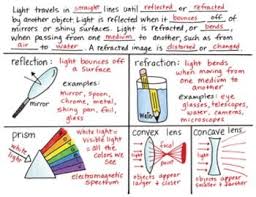 Light travels in straight lines until reflected or refracted
by another object. Light is reflected when it bounces off of
mirrors or shiny surfaces. Light is refracted, or bends,
when passing from one medium to another, such as from
air to water. A refracted image is distorted or changed.
reflection: light bounces off a surface
mirror
examples:
mirror, spoon,
chrome, metal,
shiny pan, foil,
glass
refraction: light bends
when moving from
one medium to
another
examples:
eye
glasses,
telescopes,
water, cameras,
microscopes
prism
white light =
white light
all the colors
we see
electromagnetic
spectrum
convex lens
light
objects appear
larger + closer
concave lens
light
objects appear
smaller + farther